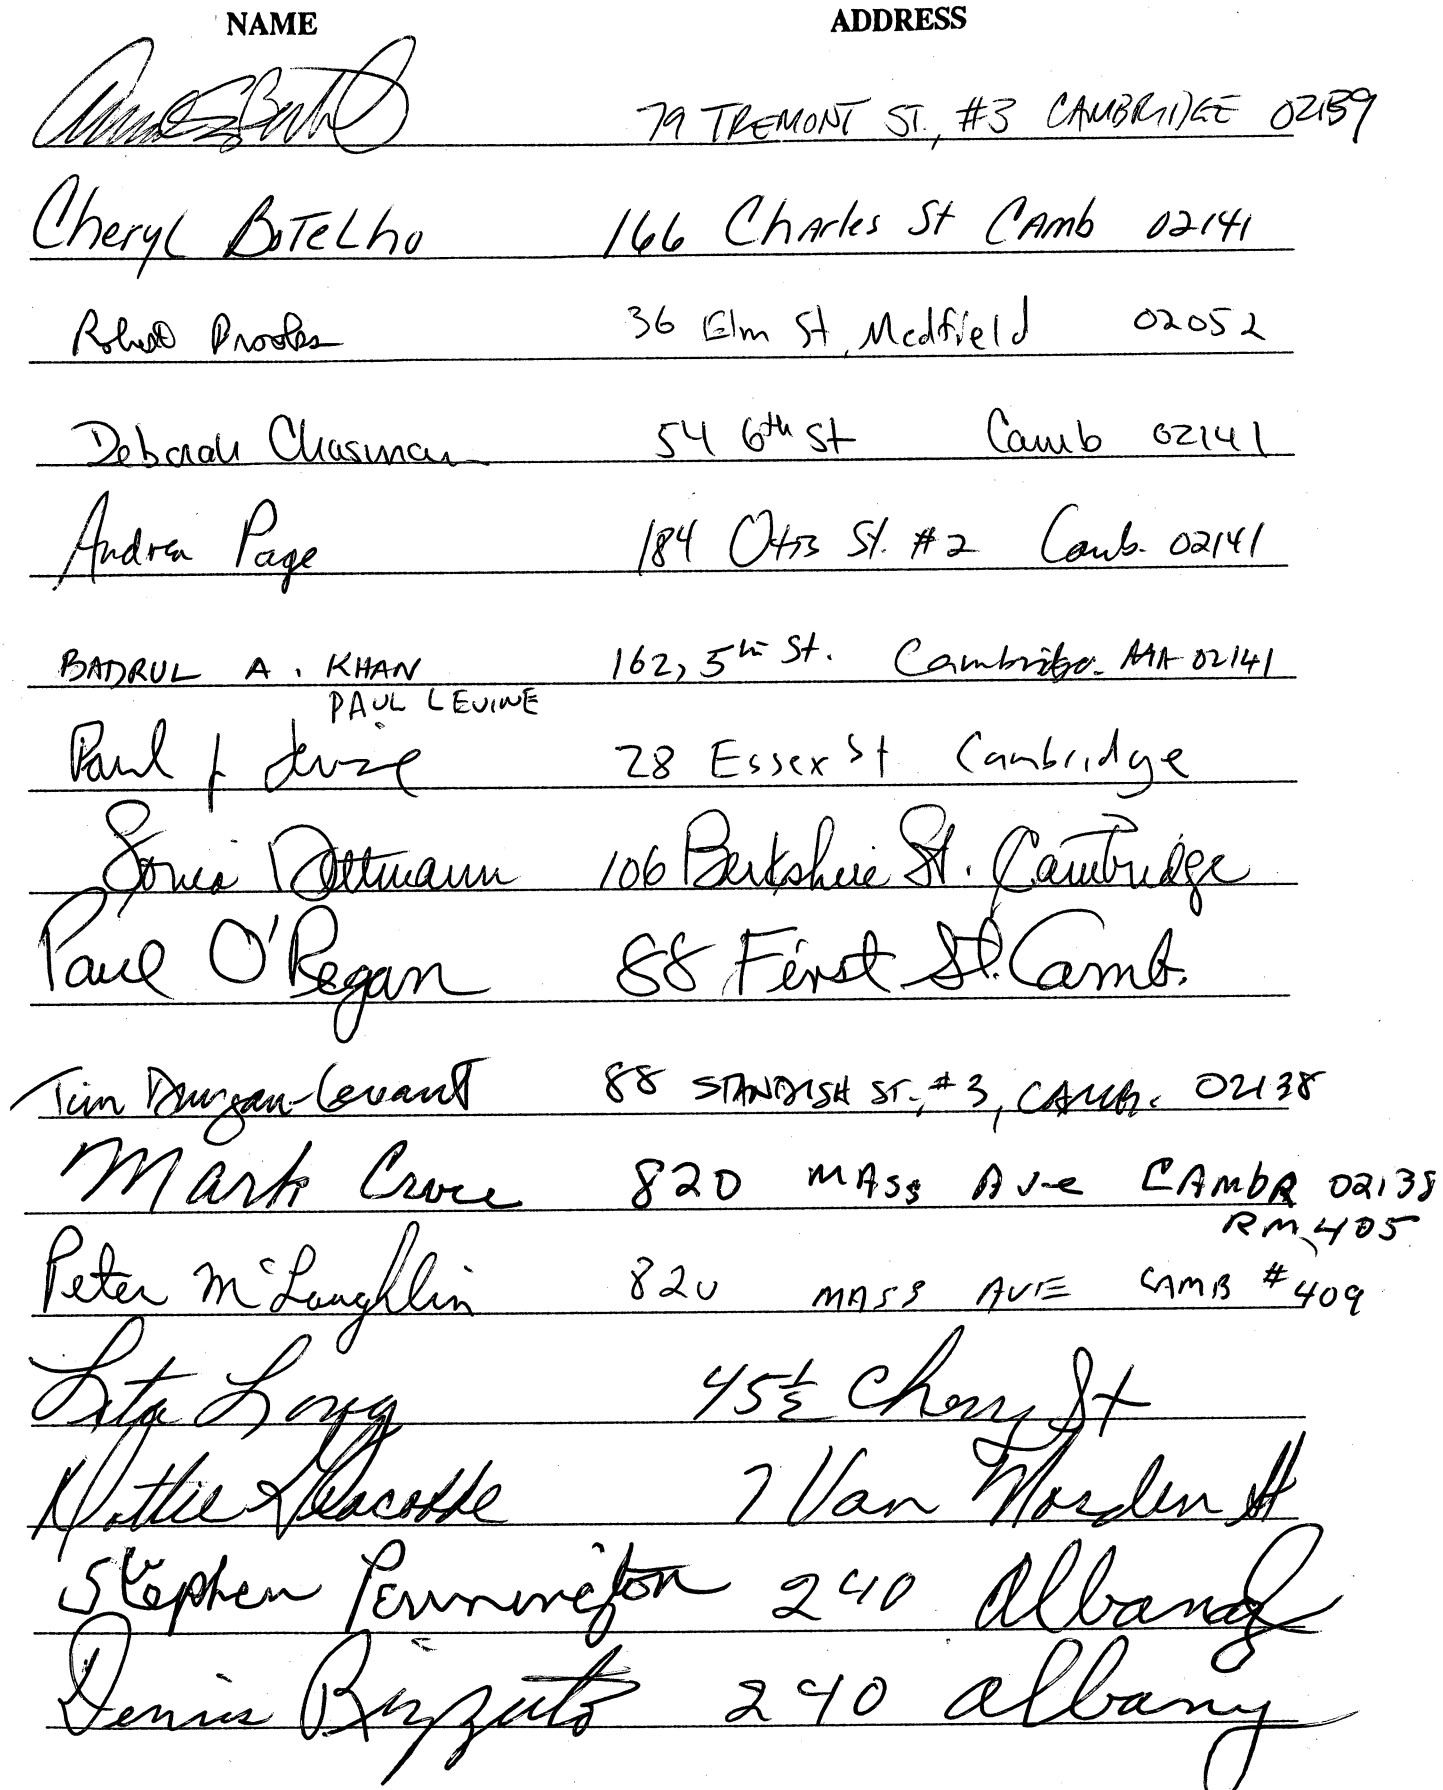 NAME ADDRESS
79 TREMONT ST., #3 CAMBRIDGE 02139
Cheryl Botelho 166 Charles St Camb 02141
Robert 36 Elm St, Medfield 02052
Deborah Chasman 54 6th St Camb 02141
Andrea Page 184 Otis St. #2 Camb. 02141
BADRUL A. KHAN 162, 5th St. Cambridge. MA 02141
PAUL LEVINE
Paul J Levine 28 Essex St Cambridge
Sonia Dettmann 106 Berkshire St. Cambridge
Paul O'Regan 88 First St. Camb.
Tim Dungan-Levant 88 STANDISH ST., #3, CAMB. 02138
Mark Croce 820 MASS Ave CAMBR 02138
RM 405
Peter McLaughlin 820 MASS AVE CAMB #409
Lita Long 45½ Cherry St
7 Van Norden St
Stephen Pennington 240 Albany
Dennis Rizzuto 240 Albany